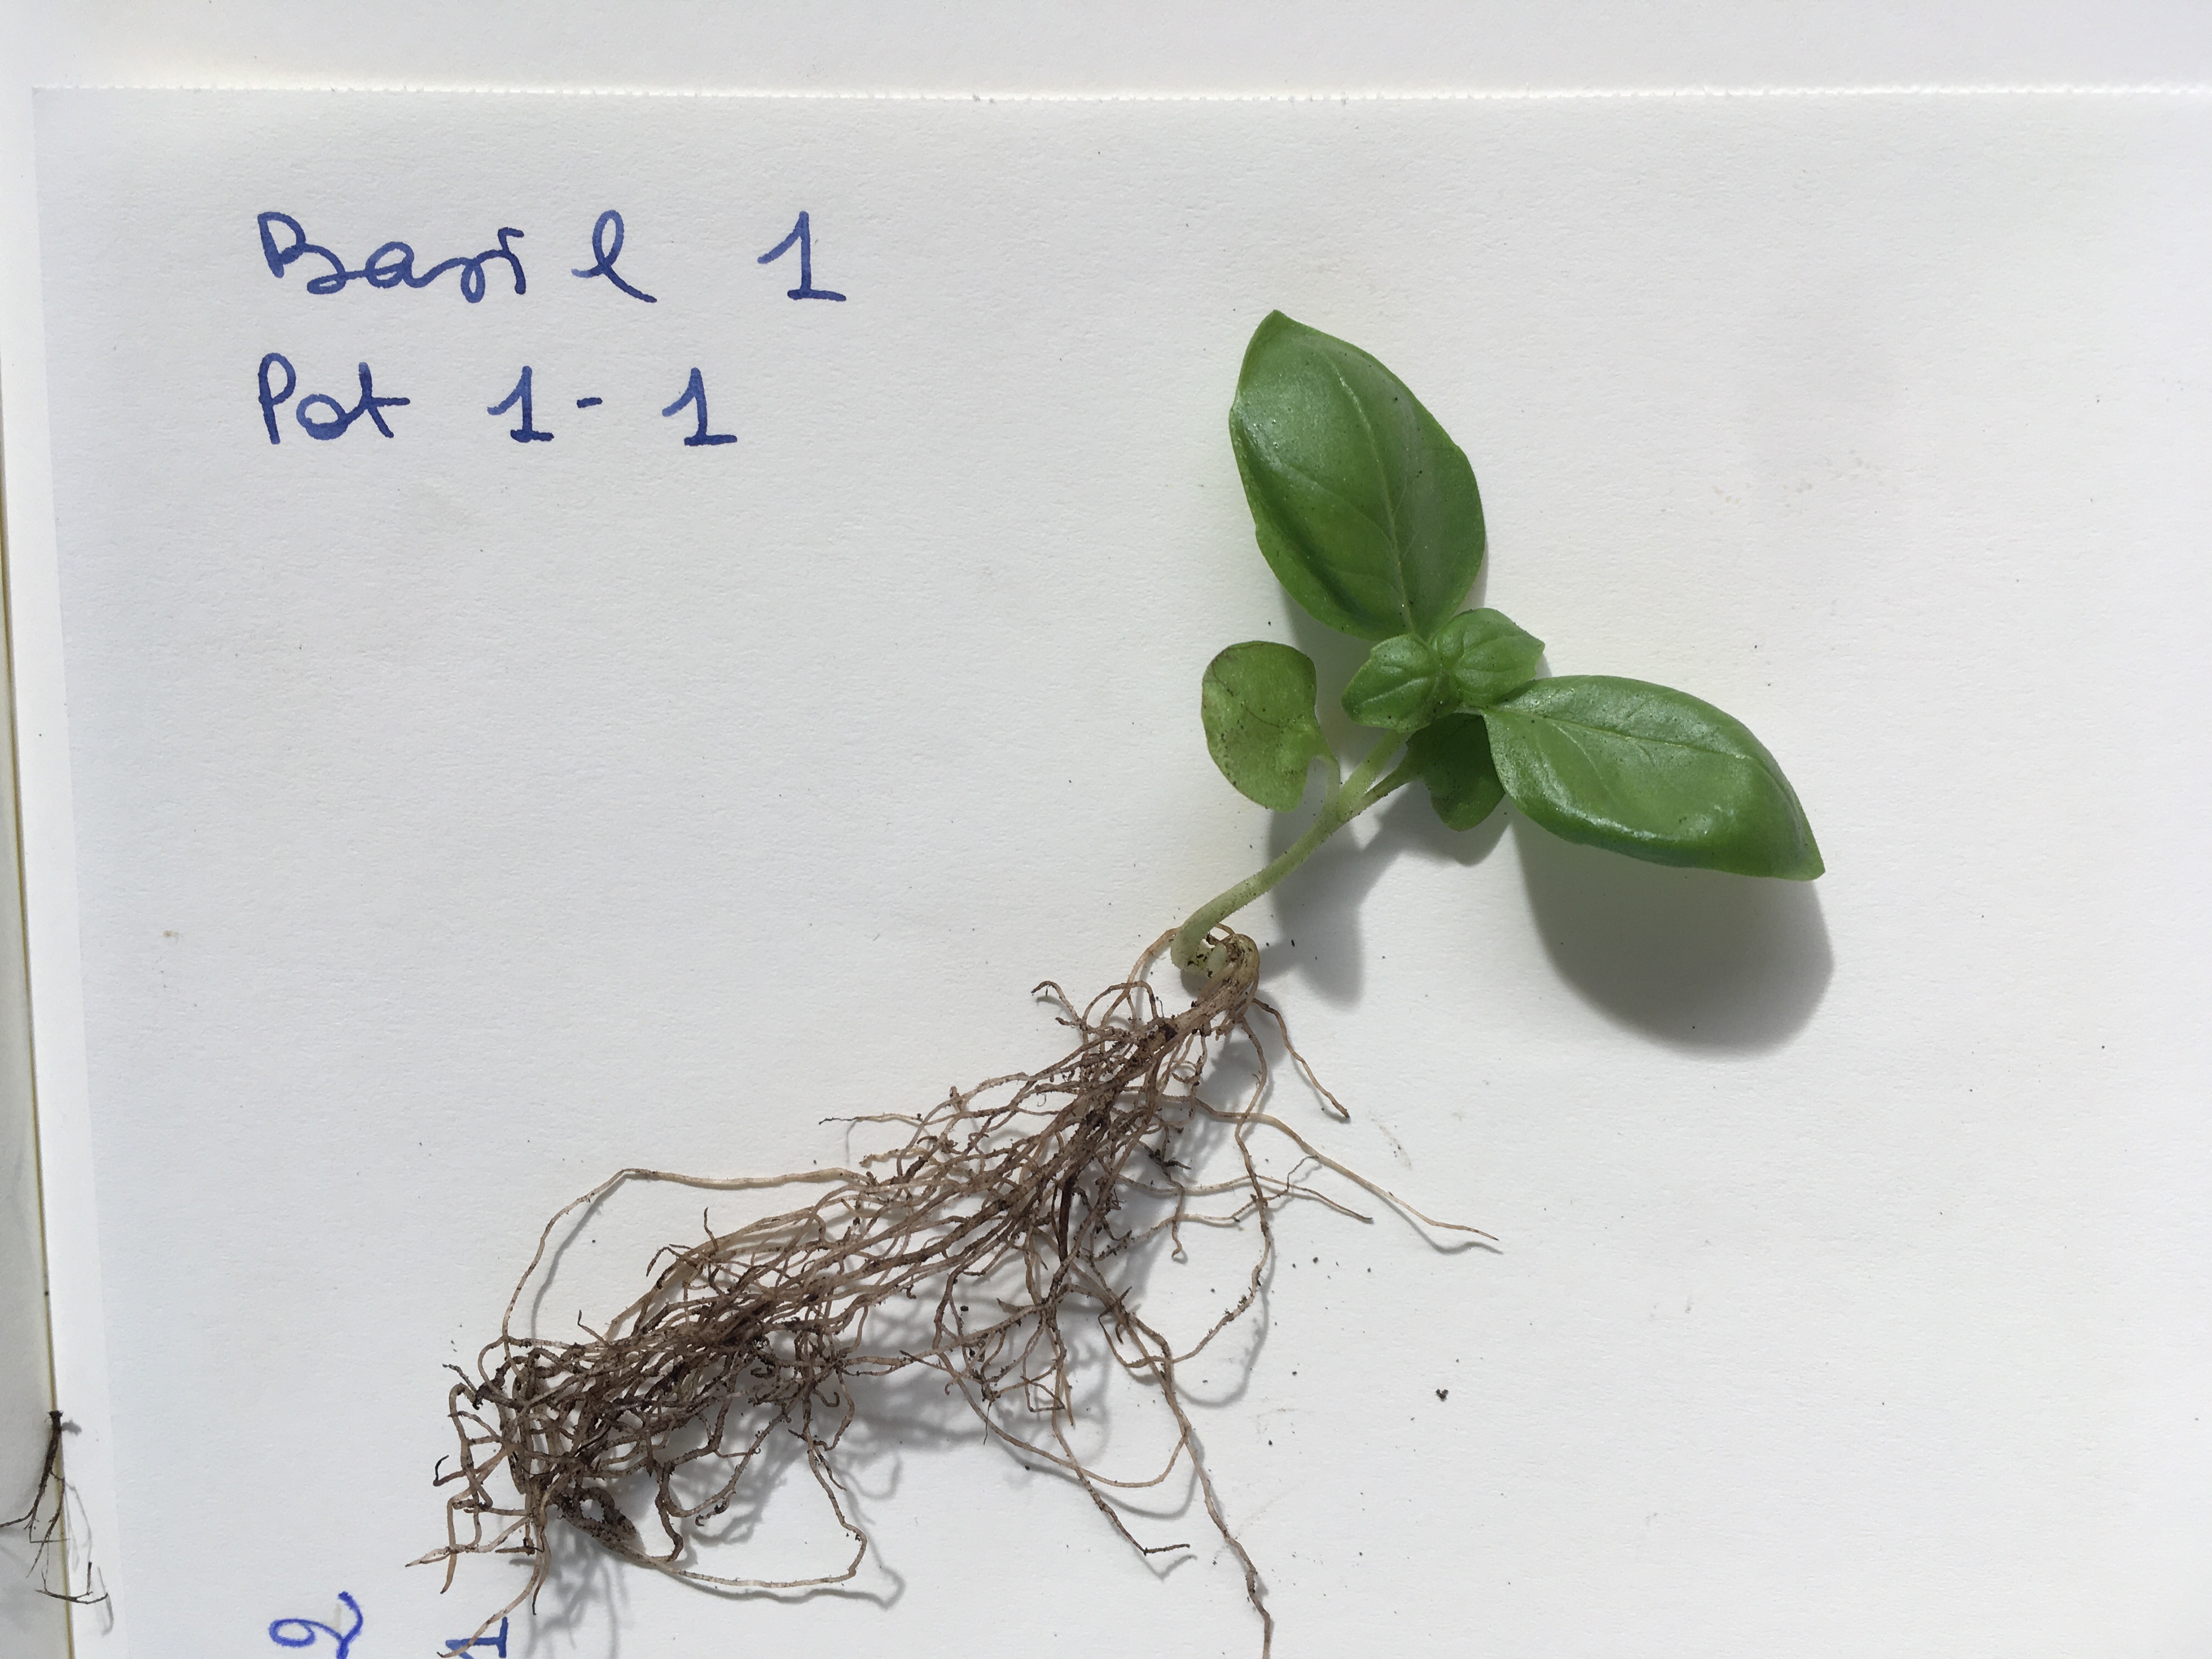 Basil 1
Pot 1-1